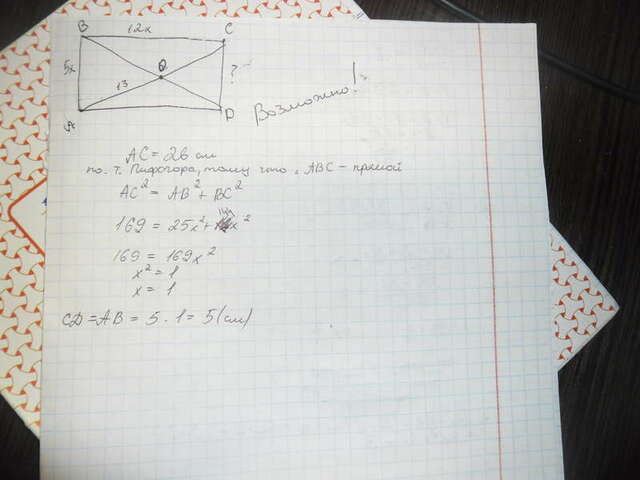 B 12x C
5x O ?
13
A D
Возможно!
AC = 26 см
по т. Пифогора, тому что ABC – прямой
AC² = AB² + BC²
169 = 25x² + 144x²
169 = 169x²
x² = 1
x = 1
CD = AB = 5 · 1 = 5 (см)